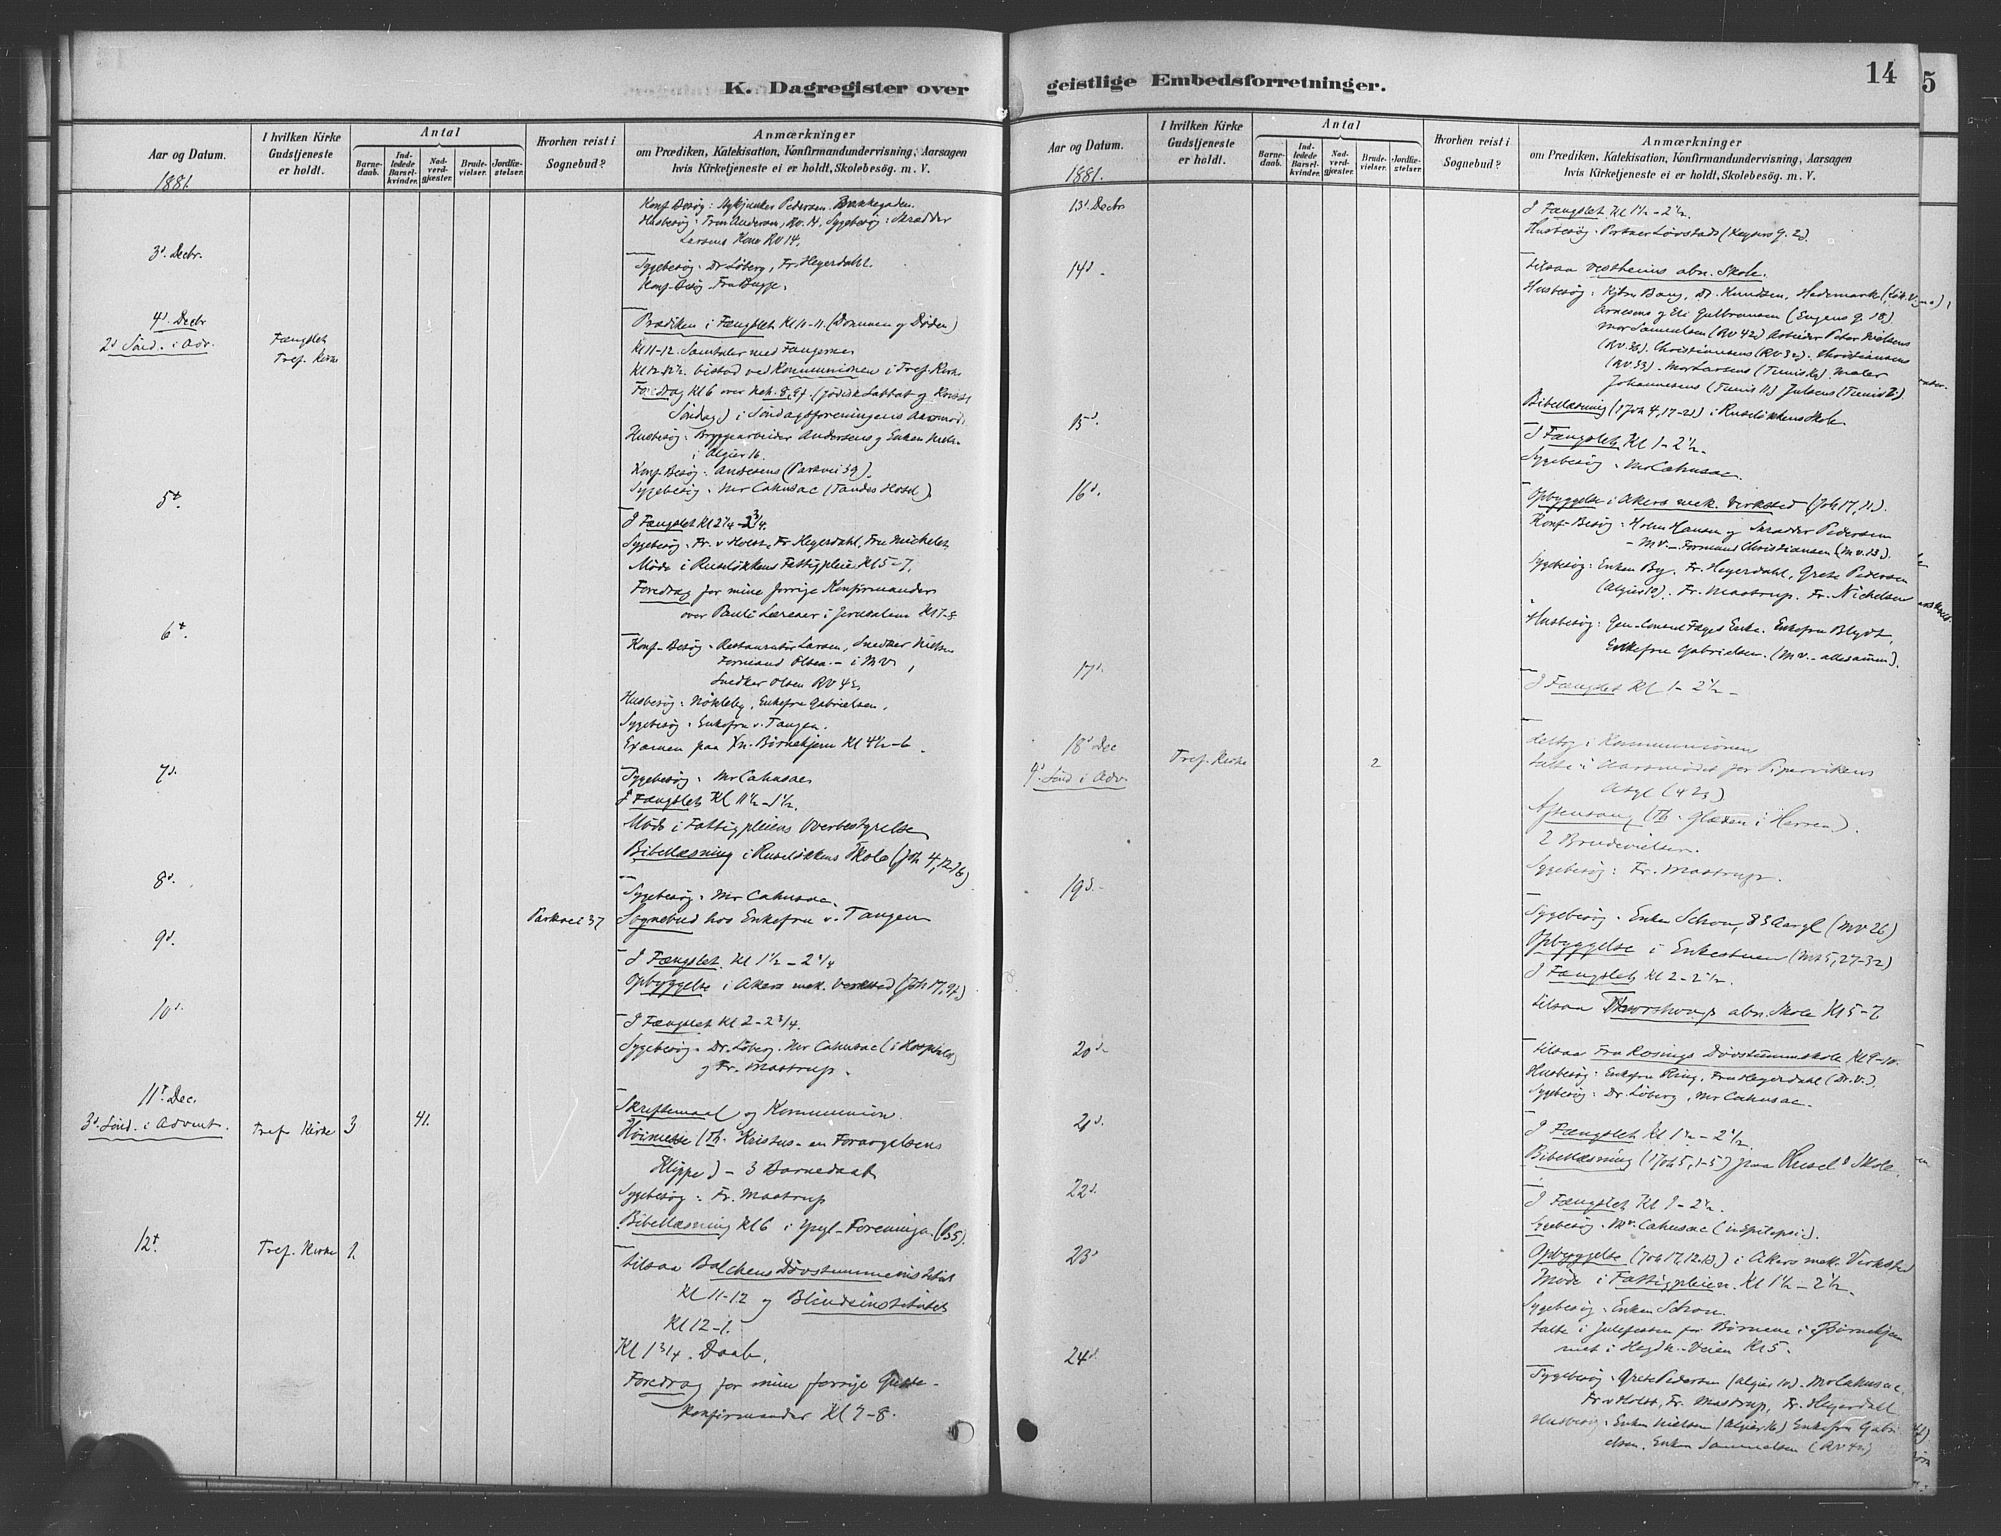 K. Dagregister over
Aar og Datum.
I hvilken Kirke
Gudstjeneste
er holdt.
Antal
Barne-
daab.
Ind-
ledede
Barsel-
kvinder.
Nad-
verd-
gjæster.
Brude-
vielser.
Jordfæ-
stelser.
Hvorhen reist i
Sognebud?
Anmærkninger
om Prædiken, Katekisation, Konfirmandundervisning, Aarsagen
hvis Kirketjeneste ei er holdt, Skolebesög. m. V.
1881.
Husbesøg: Fru Andersen, RV. 14, Sygebesøg: Skrædder
Larsens Kone RV 14.
3d. Decbr.
Sygebesøg: Dr. Løberg, Fr. Heyerdahl.
Konf-Besøg Fru Bugge.
4d. Decbr
2d Sönd. i Adv.
Fængslet
Tref. Kirke
Prædiken i Fængslet Kl 10-11. (Dommen og Døden)
Kl 11-12. Samtaler med Fangerne
Kl 12-12½. bistod ved Kommunionen i Tref. Kirke
Foredrag Kl 6 over Neh. 8, 9f. (jødisk Sabbat og Kristi
Søndag) i Søndagsforeningens Aarsmøde
Husbesøg: Bryggearbeider Andersens og Enken Niels-
i Algier 16.
Konf-Besøg: Andersens (Parkvei 39).
Sygebesøg: Mr Cahusac (Fandes Hotel).
5t.
I Fængslet Kl 2¼-2¾.
Sygebesøg: Fr. v. Holst, Fr. Heyerdahl, Fru Michelet
Møde i Ruseløkkens Fattigpleie Kl 5-7.
Foredrag for mine forrige Konfirmander
over Pauli Læreaar i Jerusalem Kl 7-8
6t.
Konf-Besøg: Restauratør Larsen, Snedker Niels-
Formand Olsen - i MV,
Snedker Olsen RV 43.
Husbesøg: Nøkleby, Enkefru Gabrielsen.
Sygebesøg: Enkefru v. Tangen.
Examen paa Børnehjem Kl 4½-6.
7d.
Sygebesøg: Mr Cahusac
I Fængslet Kl 11½-1½.
Møde i Fattigpleiens Overbestyrelse
Bibellæsning i Ruseløkkens Skole (Joh 4, 12-16)
8d.
Sygebesøg: Mr Cahusac.
Parkvei 37
Sognebud hos Enkefru v. Tangen
9d.
I Fængslet. Kl 1½-2¼
Opbyggelse i Akers mek. Verksted (Joh 17, 9f.)
10d.
I Fængslet Kl 2-2¾.
Sygebesøg: Dr. Løberg. Mr Cahusac (i Hospitalet)
og Fr. Mastrup.
11t Dec.
3d. Sönd. i Advent.
Tref. Kirke
3
41.
Skriftemaal og Kommunion.
Høimesse (Th. Kristus - en Forargelsens
Klippe) - 3 Barnedaab
Sygebesøg: Fr. Mastrup
Bibellæsning Kl 6 i Yngl-Foreninga.
12t.
Tref. Kirke
1.
tilsaa Balchens Døvstummeinstitut
Kl 11-12 og Blindeinstitutet
Kl 12-1.
Kl 1¾. Daab.
Foredrag for mine forrige Gutte-
konfirmander Kl 7-8.
geistlige Embedsforretninger.
14
Aar og Datum.
I hvilken Kirke
Gudstjeneste
er holdt.
Antal
Barne-
daab.
Ind-
ledede
Barsel-
kvinder.
Nad-
verd-
gjæster.
Brude-
vielser.
Jordfæ-
stelser.
Hvorhen reist i
Sognebud?
Anmærkninger
om Prædiken, Katekisation, Konfirmandundervisning, Aarsagen
hvis Kirketjeneste ei er holdt, Skolebesög. m. V.
1881.
13d. Decbr
I Fængslet. Kl 1½-2½.
Husbesøg: Portner Løvstads (Keysers G. 2).
14d.
tilsaa Vestheims abn. Skole.
Arnesens og Eli Gulbransen (Eugens g. 18)
Mor Samuelsen (RV 42) Arbeider Peter Nielsens
Christiansens (RV 32). Christiansens
(RV 33). Mor Larsens (Tunis). Maler
Johannesens (Tunis 11) Julsens (Tunis)
Bibellæsning (1 Joh 4, 17-21) i Ruseløkkens Skole
15d.
I Fængslet. Kl 1-2½.
Sygebesøg: Mr Cahusac.
16d.
Opbyggelse i Akers mek. Verksted (Joh 17, 11).
Konf-Besøg: Holm Hansen og Skrædder Pedersens
- MV. - Formand Christiansen (MV. 13).
Sygebesøg: Enken By, Fr. Heyerdahl, Grete Pedersen
(Algier 10). Fr. Mastrup, Fr. Nickelsen
Husbesøg: Gen-Consul Fages Enke. Enkefru Blydt,
Enkefru Gabrielsen. (MV. - allesamm).
17d.
I Fængslet Kl 1-2½-
18d Dec
4d. Sönd i Adv.
Tref. Kirke
2
deltog i Kommunionen
talte i Aarsmødet for Pipervikens
Asyl
Aftensang (Th. Glæden i Herren).
2 Brudevielser.
Sygebesøg: Fr. Mastrup.
19d.
Sygebesøg: Enken Schou, 83 Aargl (MV 26)
Opbyggelse i Enkestuen (Mt 5, 27-32)
I Fængslet Kl 2-2½.
tilsaa Thorshougs abn. Skole Kl 5-7
20d.
tilsaa Fru Rosings Døvstummeskole Kl 9-10.
Husbesøg: Enkefru Ring, Fru Heyerdahl (Dr. V.).
Sygebesøg: Dr. Løberg, Mr Cahusac.
21d.
I Fængslet Kl 1½-2½
Bibellæsning (1 Joh 5, 1-5) paa Rusel Skole
22d.
I Fængslet Kl 1-2½.
Sygebesøg: Mr. Cahusac
23d
Opbyggelse (Joh 17, 12.13) i Akers mek. Virksted
Møde i Fattigpleien. Kl 1½-2½.
Sygebesøg: Enken Schou.
talte i Julefesten for Børnene i Børnehjem
met i Hegdh.-Veien Kl 5.
24d.
Sygebesøg: Grete Pedersen (Algier 10). Mr Cahusac,
Fr v Holst, Fr. Mastrup, Fr. Heyerdahl
Husbesøg: Enken Nielsen (Algier 16) Enkefru Gabri-
elsen. Enken Samuelsen (RV 42)